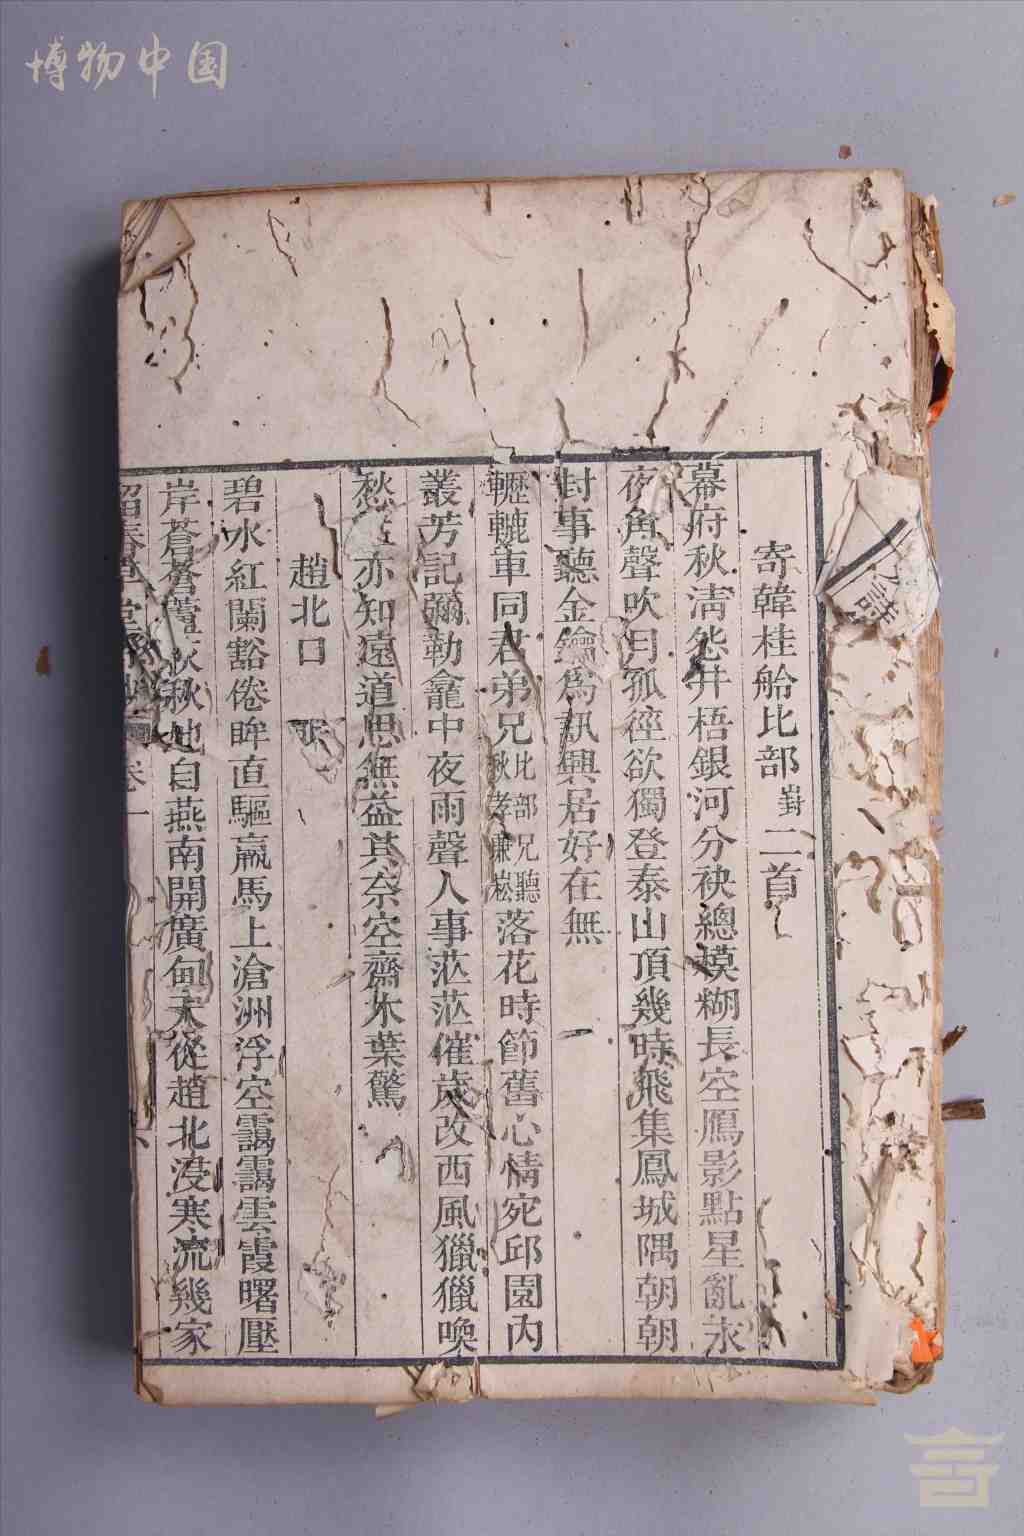 博物中国
詩
寄韓桂舲比部崶二首
幕府秋淸怨井梧銀河分袂總模糊長空鴈影點星亂永
夜角聲吹月孤徑欲獨登泰山頂幾時飛集鳳城隅朝朝
封事聽金鑰爲訊興居好在無
轣轆車同君弟兄比部兄聽秋孝廉崧落花時節舊心情宛邱園內
叢芳記彌勒龕中夜雨聲人事茫茫催歲改西風獵獵喚
愁生亦知遠道思無益其奈空齋木葉驚
趙北口
碧水紅闌豁倦眸直驅羸馬上滄洲浮空靄靄雲霞曙壓
岸蒼蒼蘆荻秋地自燕南開廣甸天從趙北浸寒流幾家
留春草堂詩鈔 卷一